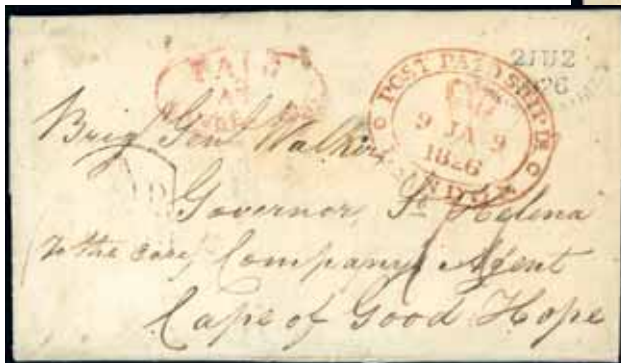 PAID
AT
POST PAID SHIP LR
9 JA 9
1826
LONDON
2JU2
26
Brig. Genl Walker
Governor St Helena
To the care, Company's Agent
Cape of Good Hope